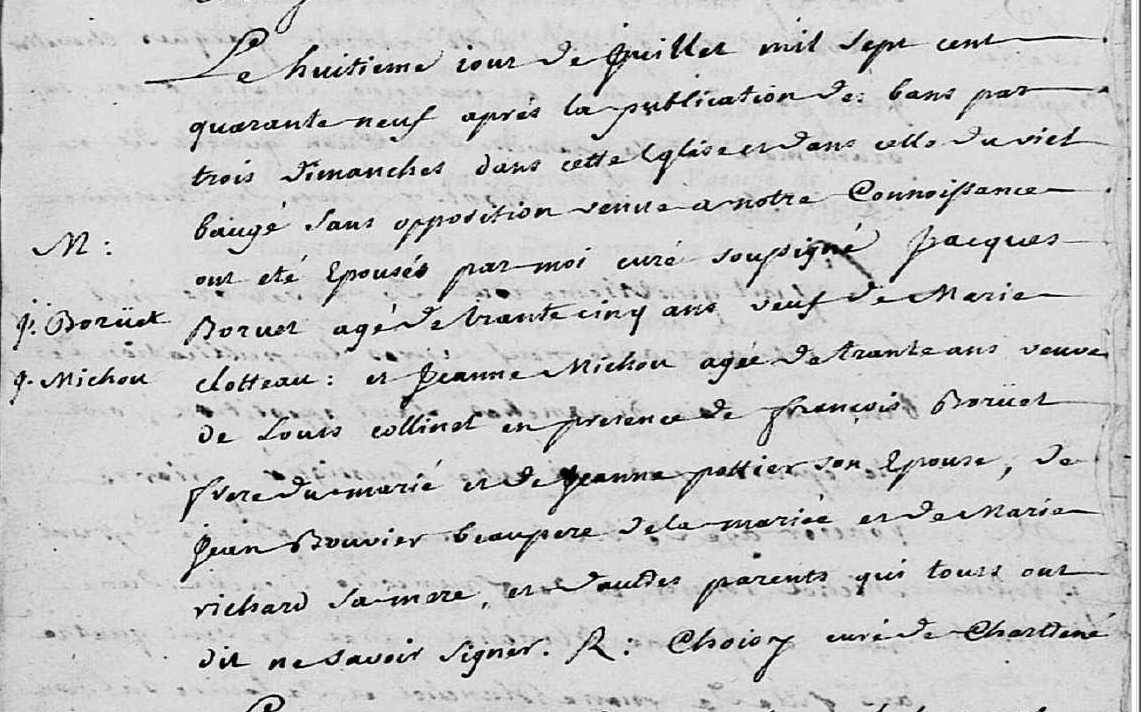 Le huitieme jour de Juillet mil sept cent
quarante neuf aprés la publication des bans par
trois dimanches dans cette Eglise et dans celle du viel
baugé sans opposition venue a notre Connoissance
M :
ont eté Epousés par moi curé soussigné Jacques
J. Borüet
Boruet agé de trante cinq ans veuf de Marie
J. Michou
clotteau : et Jeanne Michou agée de trante ans veuve
de Louis collinet en presence de françois Borüet
frere du marié et de Jeanne pottier son Epouse, de
Jean Bouvier beaupere de la mariée et de Marie
richard sa mere, et d'autres parents qui tous ont
dit ne savoir signer. R : Choisy curé de Chartené